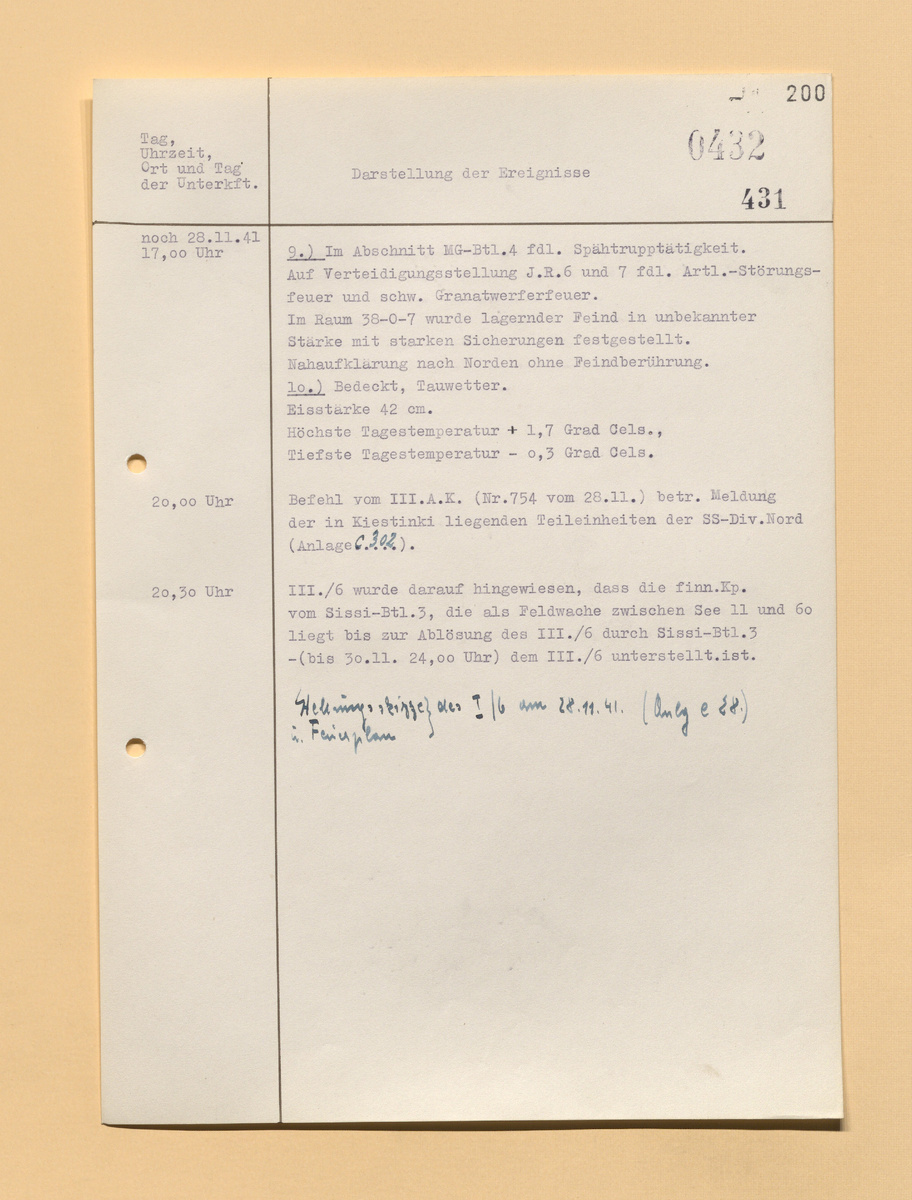 200
0432
431
Tag,
Uhrzeit,
Ort und Tag
der Unterkft.
Darstellung der Ereignisse
noch 28.11.41
17,oo Uhr
9.) Im Abschnitt MG-Btl.4 fdl. Spähtrupptätigkeit.
Auf Verteidigungsstellung J.R.6 und 7 fdl. Artl.-Störungs-
feuer und schw. Granatwerferfeuer.
Im Raum 38-0-7 wurde lagernder Feind in unbekannter
Stärke mit starken Sicherungen festgestellt.
Nahaufklärung nach Norden ohne Feindberührung.
1o.) Bedeckt, Tauwetter.
Eisstärke 42 cm.
Höchste Tagestemperatur + 1,7 Grad Cels.,
Tiefste Tagestemperatur - o,3 Grad Cels.
2o,oo Uhr
Befehl vom III.A.K. (Nr.754 vom 28.11.) betr. Meldung
der in Kiestinki liegenden Teileinheiten der SS-Div.Nord
(Anlage C.302.).
2o,3o Uhr
III./6 wurde darauf hingewiesen, dass die finn.Kp.
vom Sissi-Btl.3, die als Feldwache zwischen See 11 und 6o
liegt bis zur Ablösung des III./6 durch Sissi-Btl.3
-(bis 3o.11. 24,oo Uhr) dem III./6 unterstellt.ist.
Stellungsskizze} des I/6 am 28.11.41. (Anlg e 28.)
u. Feuerplan